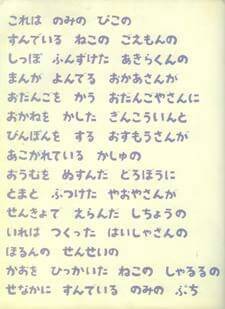 これは のみの ぴこの
すんでいる ねこの ごえもんの
しっぽ ふんずけた あきらくんの
まんが よんでる おかあさんが
おだんごを かう おだんごやさんに
おかねを かした ぎんこういんと
ぴんぽんを する おすもうさんが
あこがれている かしゅの
おうむを ぬすんだ どろぼうに
とまと ぶつけた やおやさんが
せんきょで えらんだ しちょうの
いれば つくった はいしゃさんの
ほるんの せんせいの
かおを ひっかいた ねこの しゃるるの
せなかに すんでいる のみの ぷち